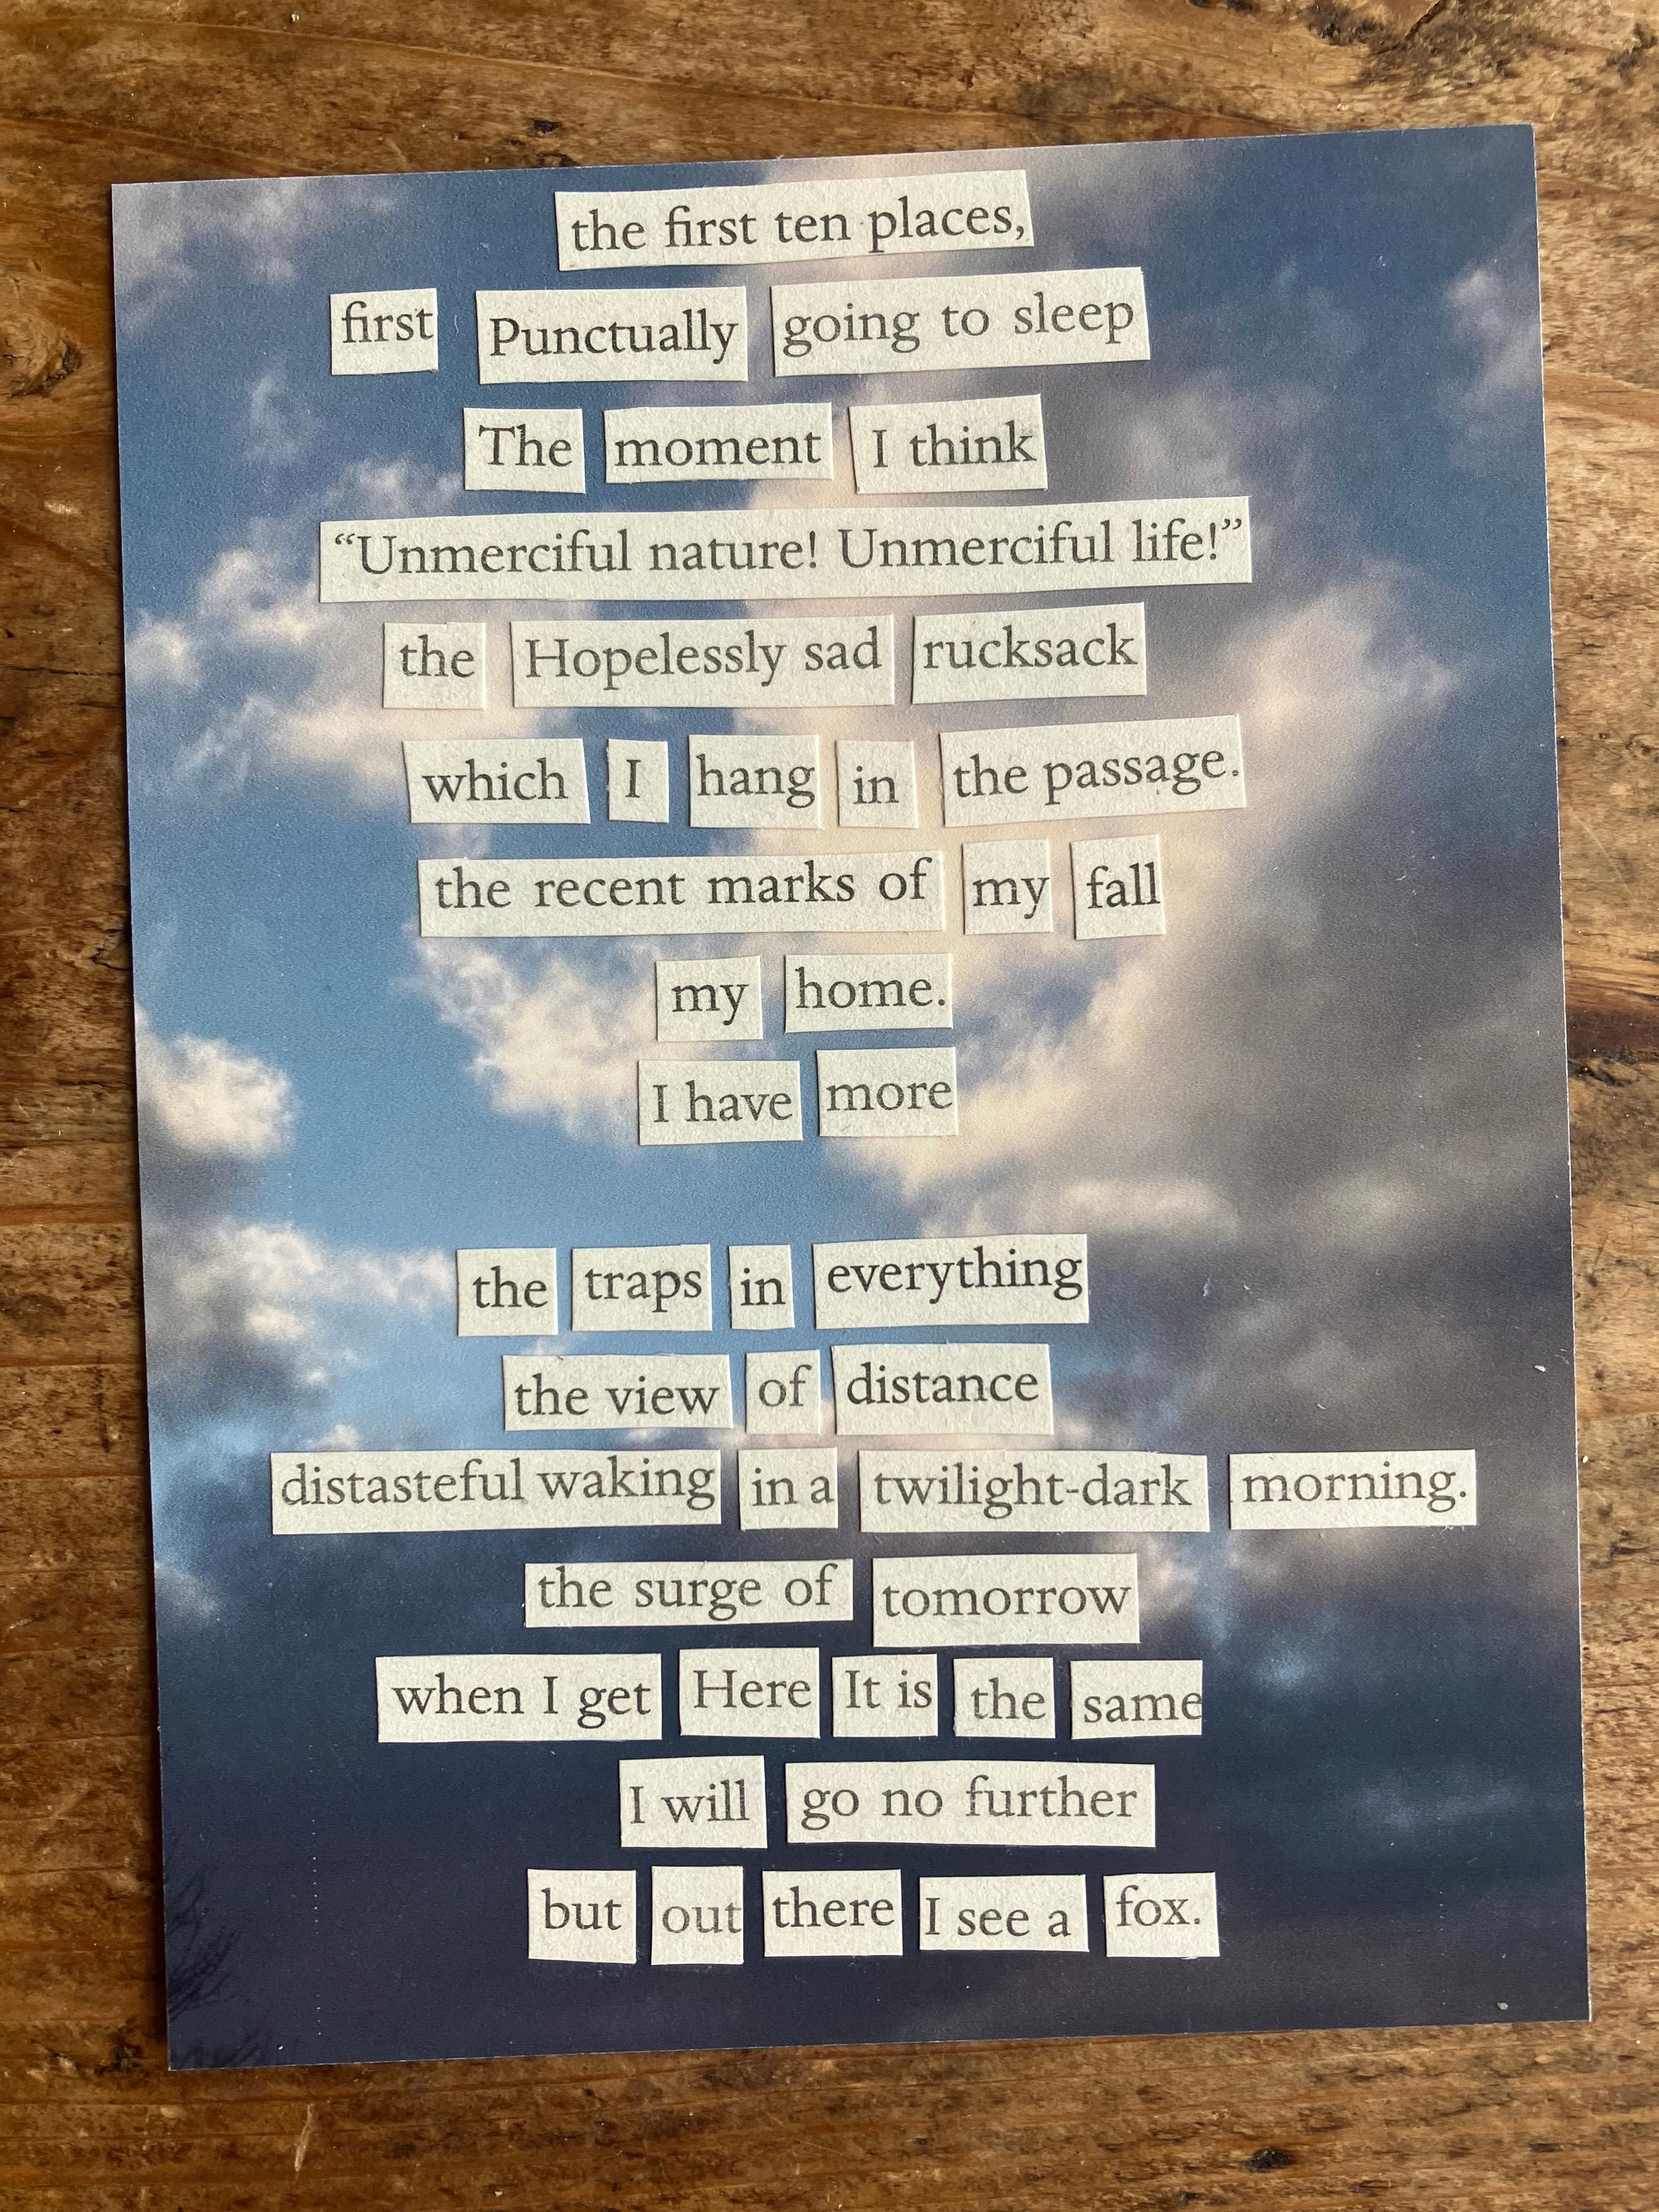 the first ten places,
first Punctually going to sleep
The moment I think
“Unmerciful nature! Unmerciful life!”
the Hopelessly sad rucksack
which I hang in the passage.
the recent marks of my fall
my home.
I have more
the traps in everything
the view of distance
distasteful waking in a twilight-dark morning.
the surge of tomorrow
when I get Here It is the same
I will go no further
but out there I see a fox.